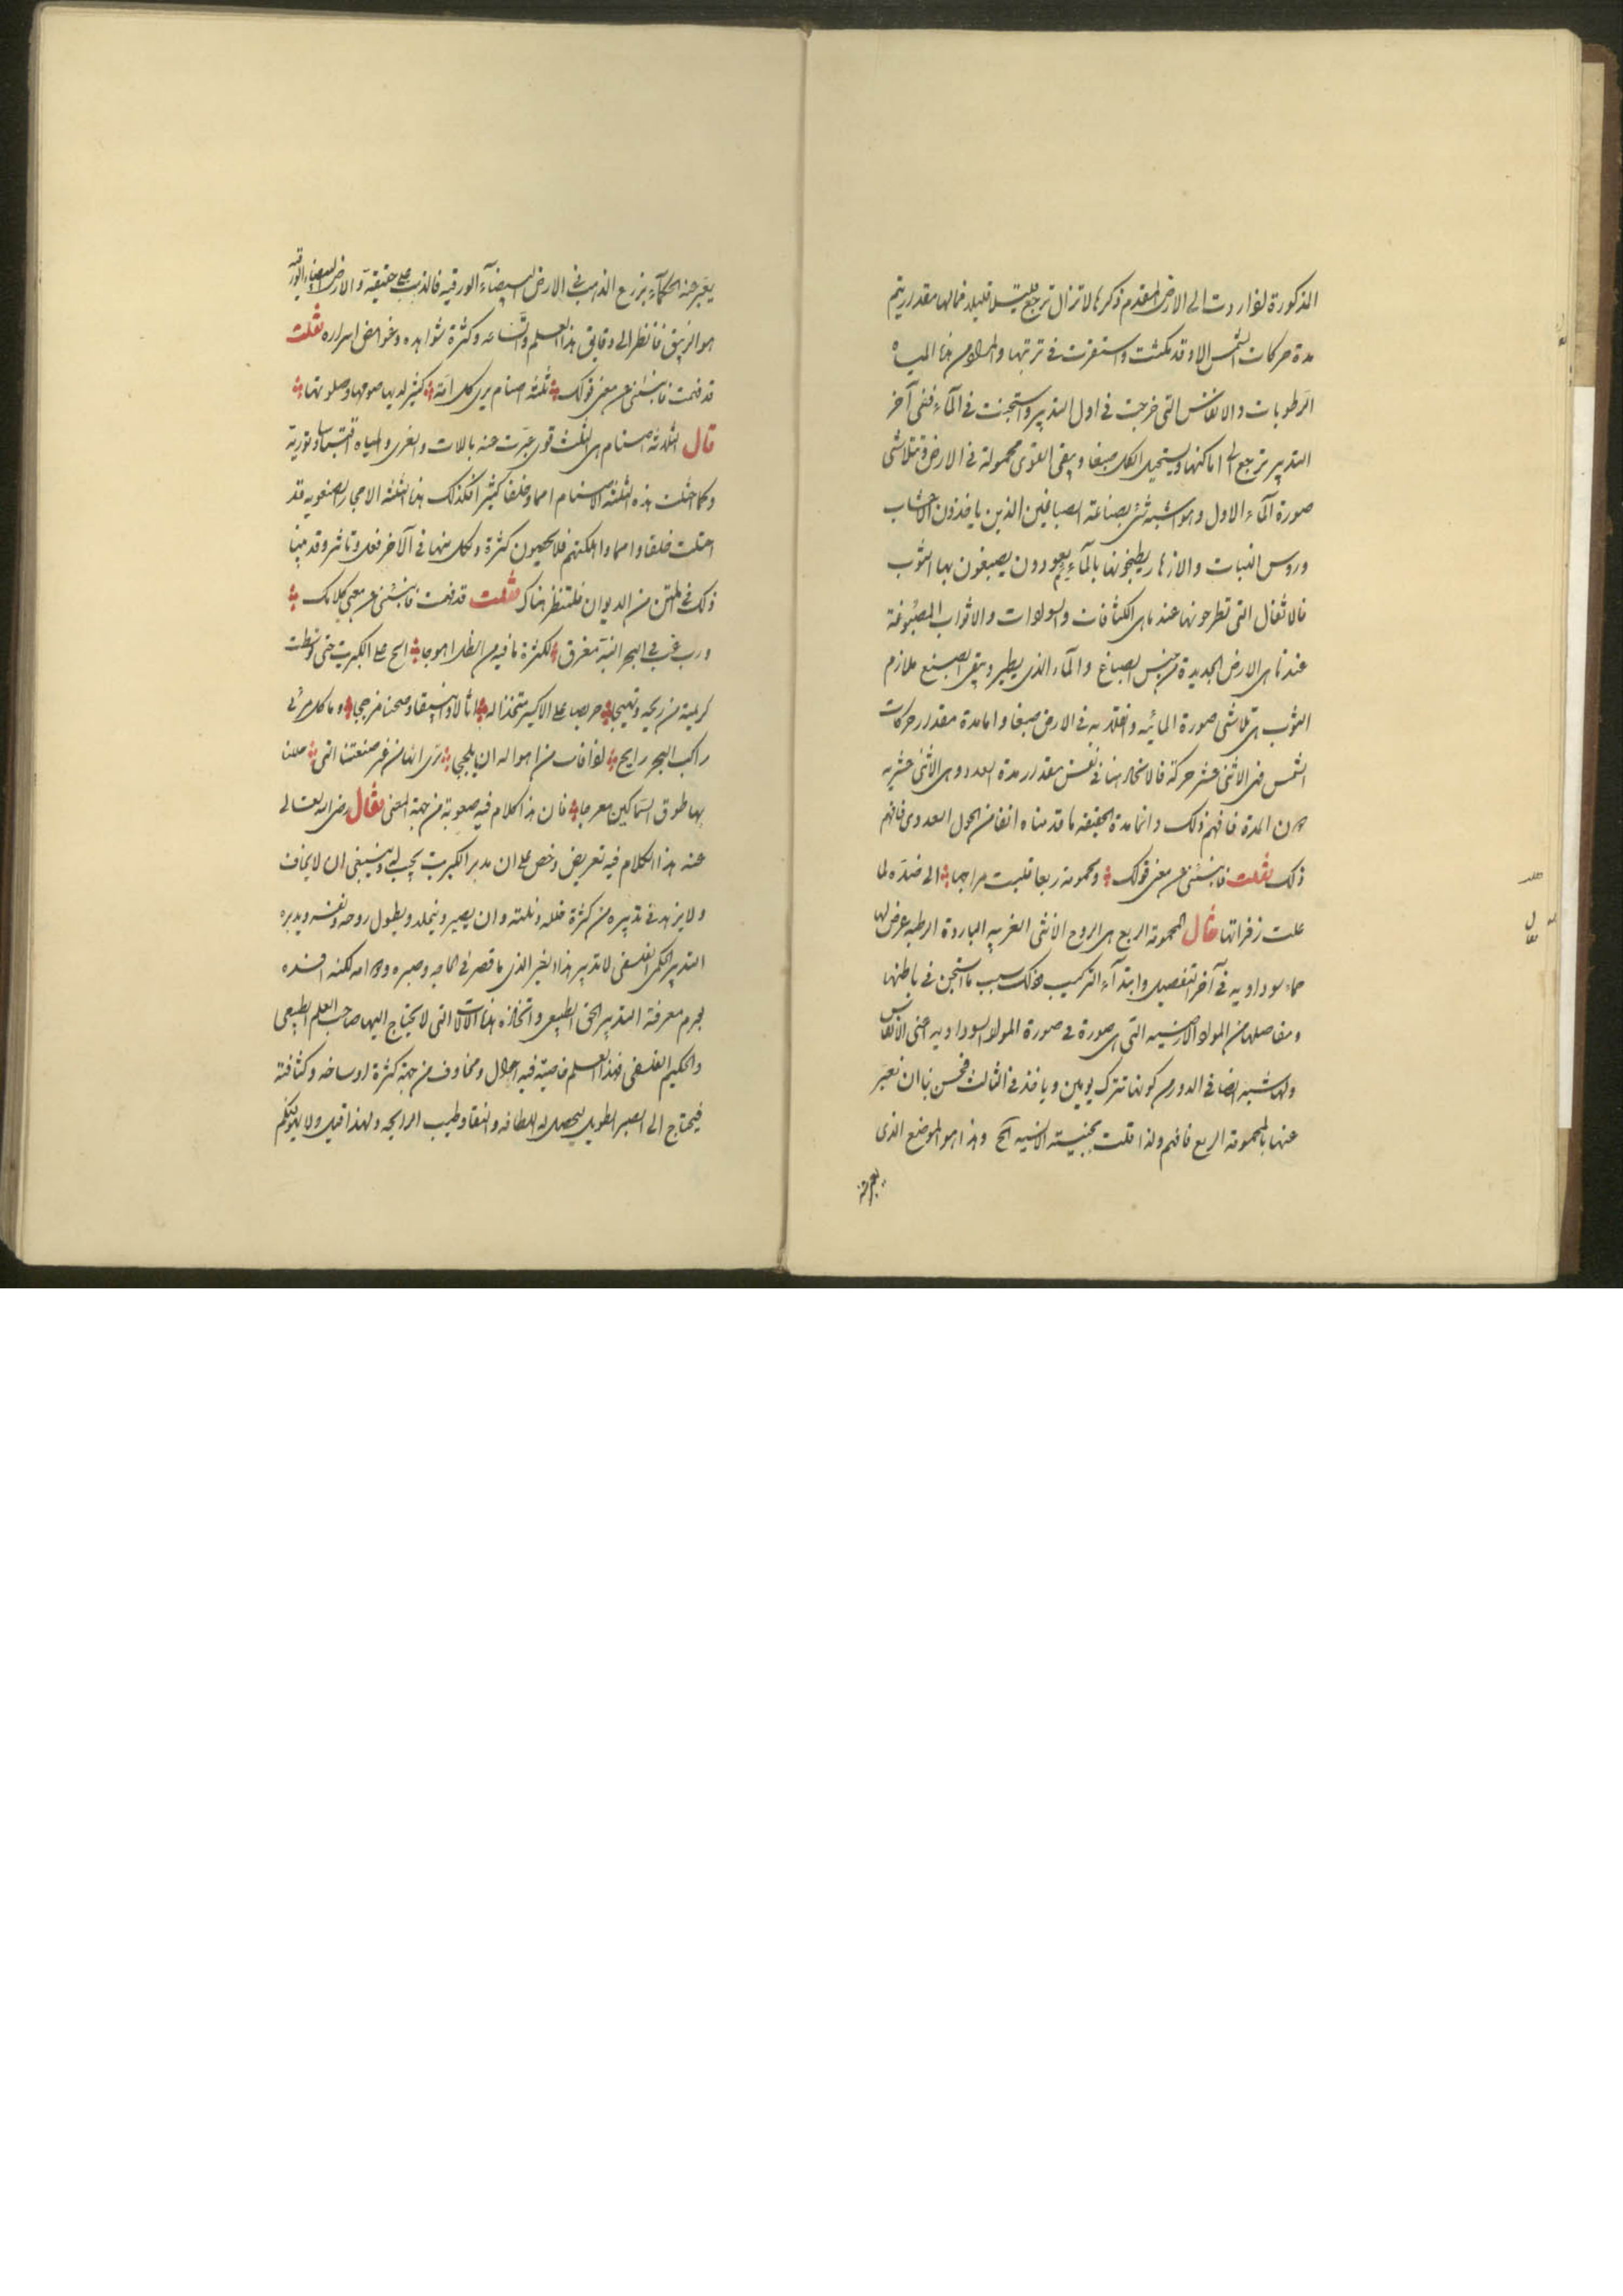 المذكورة لو اردت الى الارض المقدم ذكرها لا تزال ترجع قليلا قليلا فما لها مقدر ريتم
مدة حركات الشمس الا وقد مكثت واستقرت في تربتها والمراد من هذا المياه
الرطوبات والانفاس التي خرجت في اول التدبير واستجنت في المآء ففي آخر
التدبير ترجع الى اماكنها ويستحيل الكل صبغا ويبقى القوى محمولة في الارض وتتلاشى
صورة المآء الاول وهو اشبه شئ بصناعة الصباغين الذين ياخذون الاخشاب
وروس النبات والازهار يطبخونها بالمآء ثم يعودون يصبغون بها الثوب
فالاثفال التي تطرحونها عندنا هي الكثافات والسوادات والاثواب المصبوغة
عندنا هي الارض الجديدة من جنس الصباغ والمآء الذي يطير ويبقى الصبغ ملازم
الثوب هي تلاشي صورة المائيه وانقلابه في الارض صبغا واما مدة مقدار حركات
الشمس فهي الاثنى عشر حركة فالانحلال هنا في نفس مقدار مدة العدد وهي الاثنى عشريه
من المدة فافهم ذلك وانما مدة الحقيقة ما قدمناه انفا من الحول العددي فافهم
ذلك فقلت فانبئني عن معنى قولك ومحمومة ربعا قلبت مزاجها الى ضده لما
علت زفراتها فقال المحمومة الربع هي الروح الانثى الغربيه الباردة الرطبه عرض لها
حماء سوداويه في آخر التفصيل وابتدآء التركيب وذلك بسبب ما استجن في باطنها
ومفاصلها من المواد الارضيه التي هي صورة في صورة المواد السوداويه اعني الانفاس
ولها شبه ايضا في الدور من كونها تترك يومين وياخذ في الثالث فحسن بنا ان نعبر
عنها بالمحمومة الربع فافهم ولذا قلت بجنيسته الانسيه الخ وهذا هو الموضع الذي
يعبر عنه
يعبر عنه الحكمآء بزرع الذهب في الارض البيضآء الورقيه فالذهب على حقيقة والارض البيضاء الورقيه
هو الزيبق فانظر الى دقايق هذا العلم واتساعه وكثرة شواهده وغوامض اسراره فقلت
قد فهمت فانبئني عن معنى قولك ثلثة اصنام يرى كل امة كثير لديها صومها وصلوتها
قال الثلاثة اصنام هي الثلث قوى عبرت عنه باللات والعزى ومناه اقتباسا وتورية
وكما اضلت هذه الثلثة الاصنام امما وخلقا كثيرا فكذلك هذا الثلثة الاحجار الصنعويه قد
اضلت خلقا وامما واهلكتهم فلا يحصون كثرة ولكل منها في الآخر فعل وتاثير وقد بينا
ذلك في المتن من الديوان فلتنظر هناك فقلت قد فهمت فانبئني عن معنى كلامك
ورب فتى في البحر الفيته مغرق لكثرة ما فيه من الظل اهوجا الح على الكبريت حتى توسطت
كريمته من ريحه وتهيجا حريصا على الاكسير متخذا له اثالا وانبيقا وصحنا مزججا وما كل من في
راكب البحر رابح لو اخاف من اهواله ان يلججا ترى انها من غير صنعتنا التي حللنا
بها طوق السماكين معرجا فان هذا الكلام فيه صعوبة من جهة المعنى فقال رضي الله تعالى
عنه هذا الكلام فيه تعريض وخص على ان مدبر الكبريت يجب له وينبغي ان لا يخاف
ولا يزهد في تدبيره من كثرة ظله ونتنه وان يصبر ويتجلد ويطول روحه ونفسه ويدبره
التدبير الحكمي الفلسفي لا تدبير هذا الغير الذي ما قصر في الحاحه وصبره ودوامه لكنه افسده
بحرم معرفة التدبير الحق الطبيعي واتخاذه هذه الآلات التي لا يحتاج اليها صاحب العلم الطبيعي
والحكيم الفلسفي فهذا العلم خاصيته فيه اهوال ومخاوف من جهة كثرة اوساخه وكثافته
فيحتاج الى الصبر الطويل ليحصل له اللطافه والنقا وطيب الرايحه ولهذا قيل ولا يهولنكم